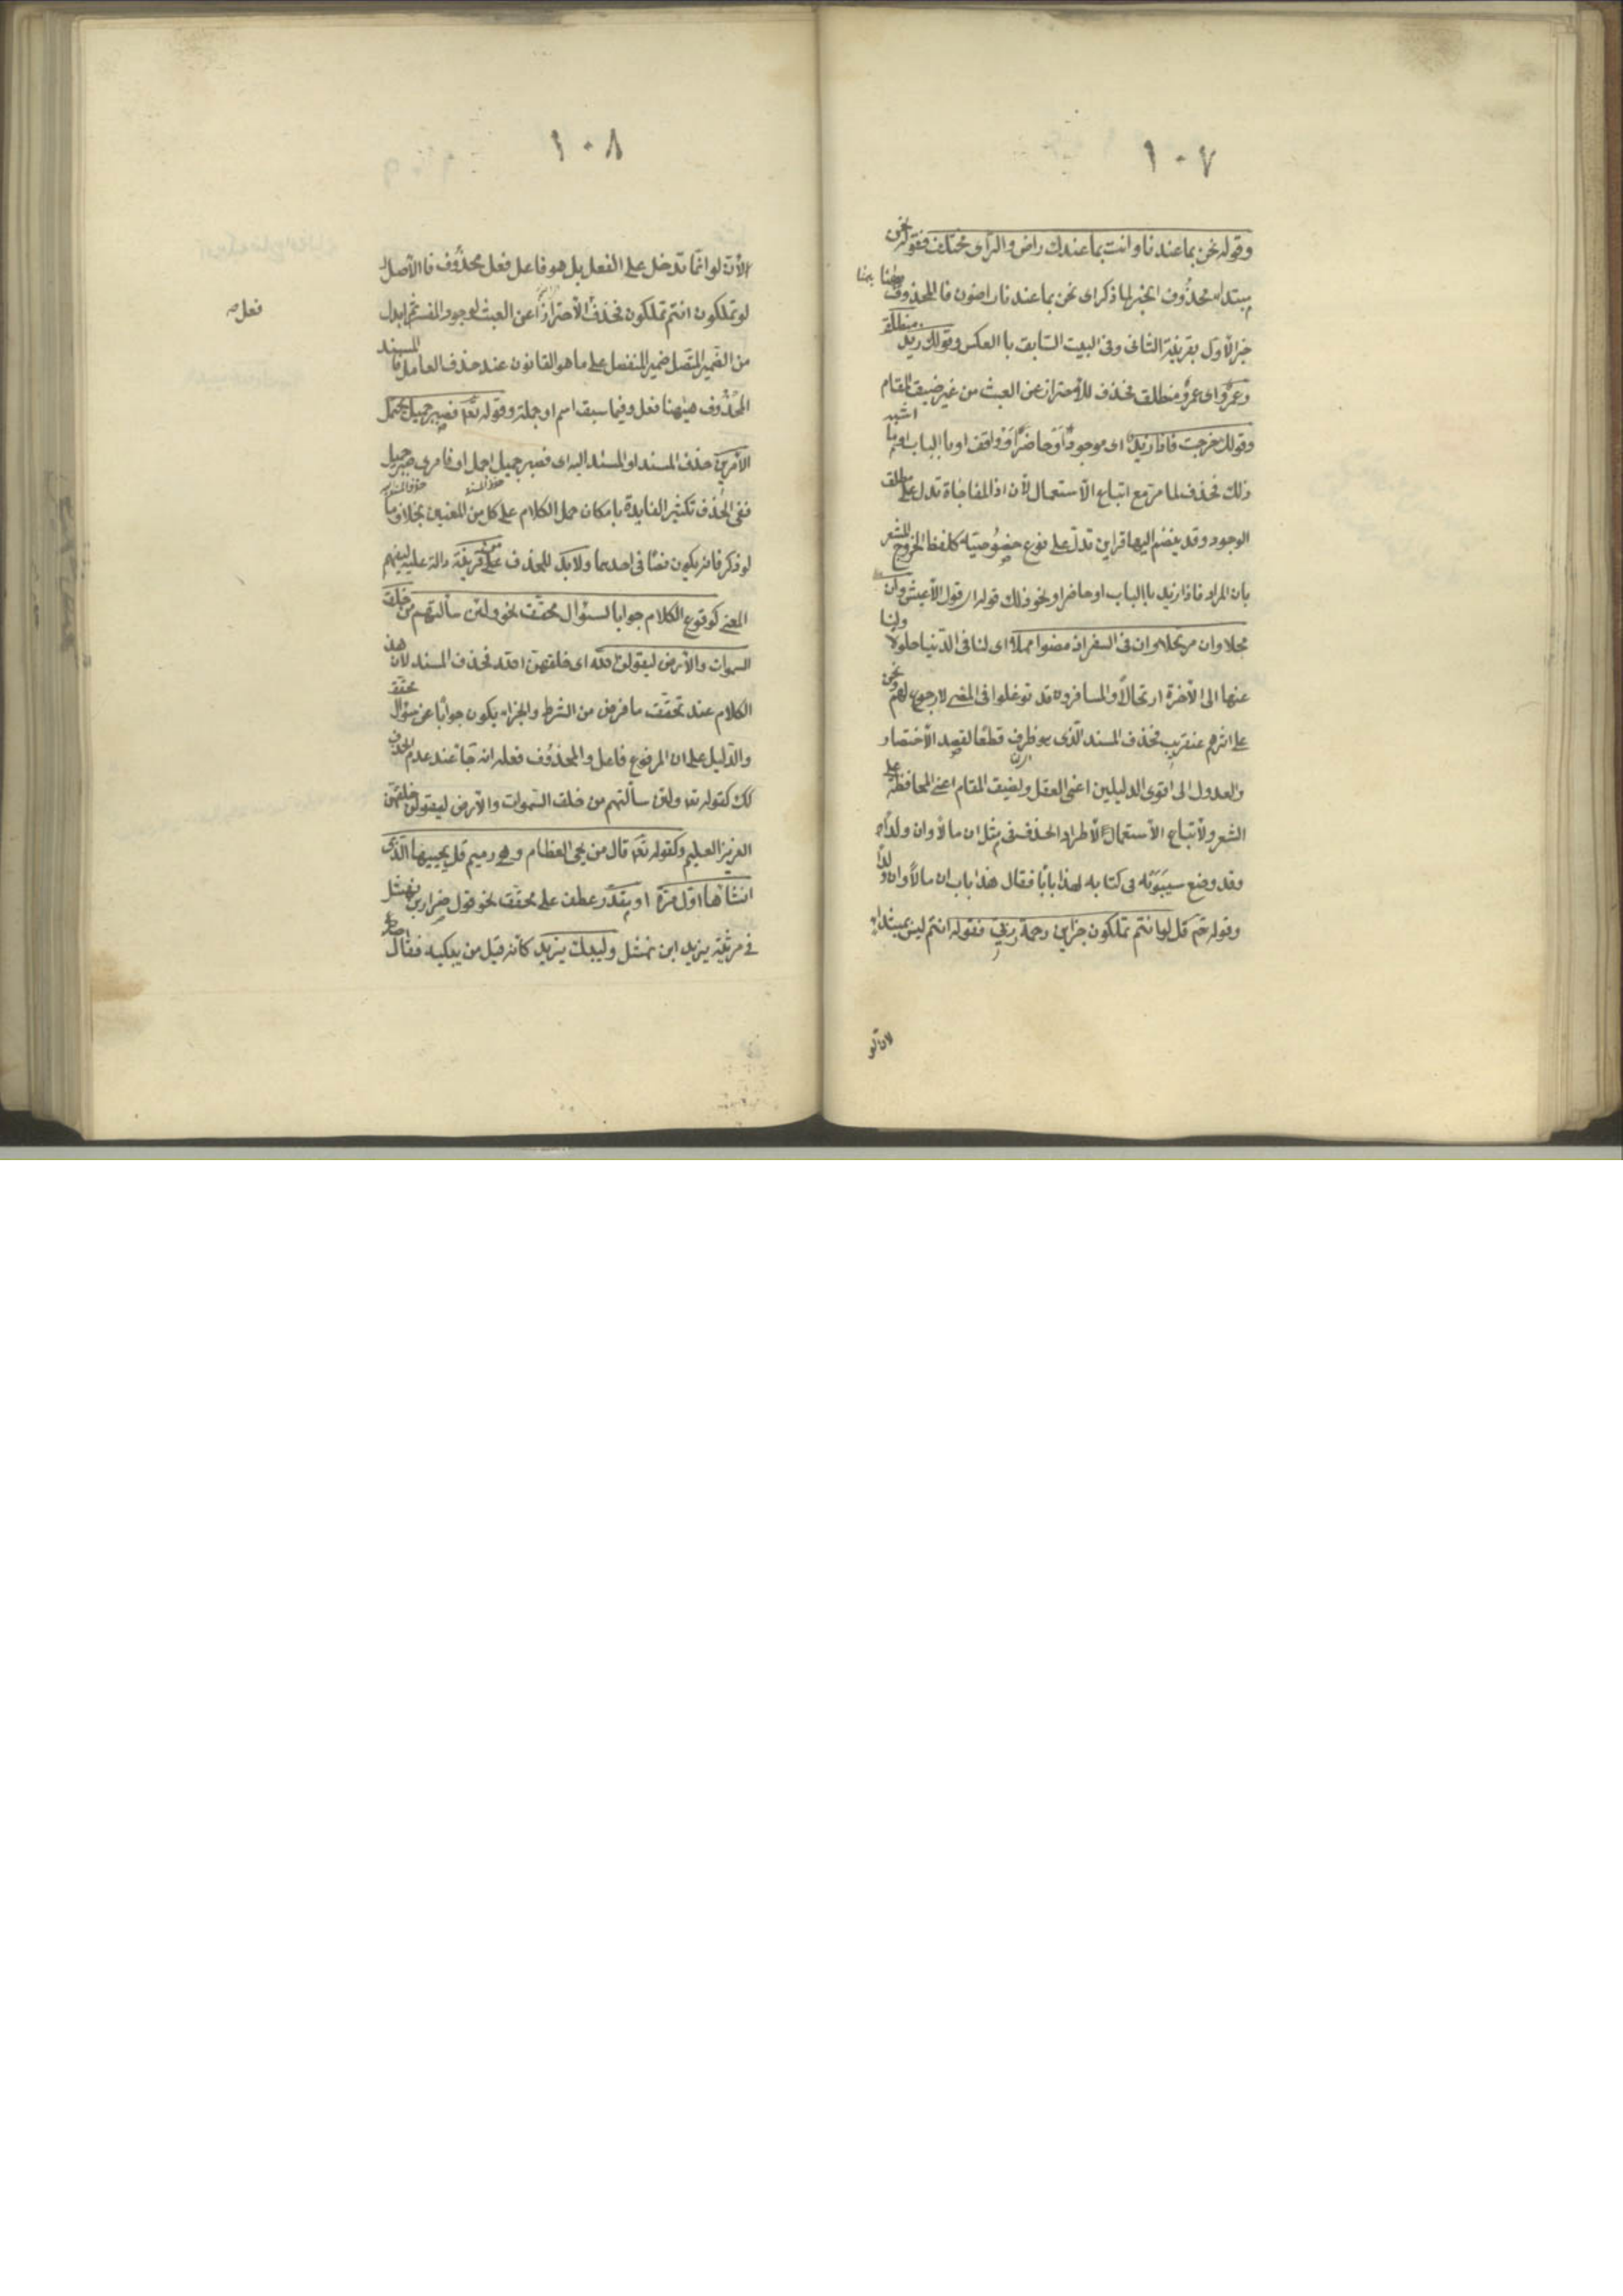 ١٠٧
وقوله نحن بما عندنا وانت بما عندك راض والرأى مختلف فقوله نحن
مبتداء محذوف الخبر لما ذكر اى نحن بما عندنا راضون فالمحذوف ههنا
خبر الاول بقرينة الثانى وفى البيت السابق با العكس وقولك زيد منطلق
وعمرو اى عمرو منطلق فحذف للاحتراز عن العبث من غير ضيق المقام
وقولك خرجت فاذا زيد اى موجود او حاضر او واقف او با الباب او ما اشبه
ذلك فحذف لما مر مع اتباع الاستعمال لان اذا المفاجاة تدل على مطلق
الوجود وقد ينضم اليها قراين تدل على نوع خصوصيته كلفظ الخروج المشعر
بان المراد فاذا زيد با الباب او حاضر او نحو ذلك قوله اى قول الاعشى وان
محلا وان مرتحلا وان فى السفر اذ مضوا مهلا اى لنا فى الدنيا حلولا ولنا
عنها الى الاخرة ارتحالا والمسافرون قد توغلوا فى المضى لا رجوع لهم ونحن
على اثرهم عنقريب فحذف المسند الذى هو ظرف قطعا لقصد الاختصار
والعدول الى اقوى الدليلين اعنى العقل ولضيق المقام اعنى المحافظة على
الشعر ولاتباع الاستعمال لاطراد الحذف فى مثل ان مالا وان ولدا
وقد وضع سيبويه فى كتابه لهذا بابا فقال هذا باب ان مالا وان ولدا
وقوله تع قل لو انتم تملكون خزاين رحمة ربى فقوله انتم ليس بمبتداء
لان لو
١٠٨
لان لو انما تدخل على الفعل بل هو فاعل فعل محذوف فا الاصل
لو تملكون انتم تملكون فحذف الاحترازا عن العبث لوجود المفسر ثم ابدل
فعل صه
من الضمير المتصل ضمير المنفصل على ما هو القانون عند حذف العامل فا المسند
المحذوف هيهنا فعل وفيما سبق اسم او جملة وقوله تعا فصبر جميل يحتمل
الامرين حذف المسند او المسند اليه اى فصبر جميل اجمل او فامرى صبر جميل
ففى الحذف تكثير الفايدة بامكان حمل الكلام على كل من المعنيين بخلاف ما
لو ذكر فانه يكون نصا فى احدهما ولابد للحذف من قرينة دالة عليه ليفهم
المعنى كوقوع الكلام جوابا لسئوال محقق نحو ولئن سألتهم من خلق
السموات والارض ليقولن الله اى خلقهن الله فحذف المسند لان هذا
الكلام عند تحقق ما فرض من الشرط والجزاء يكون جوابا عن سؤال محقق
والدليل على ان المرفوع فاعل والمحذوف فعله انه جاء عند عدم الحذف
كك كقوله تعا ولئن سألتهم من خلق السموات والارض ليقولن خلقهن
العزيز العليم وكقوله تعا قال من يحى العظام وهى رميم قل يحييها الذى
انشاها اول مرة او مقدر عطف على محقق نحو قول ضرار بن نهشل
فى مرثية يزيد ابن نهشل وليبك يزيد كانه قيل من يبكيه فقال